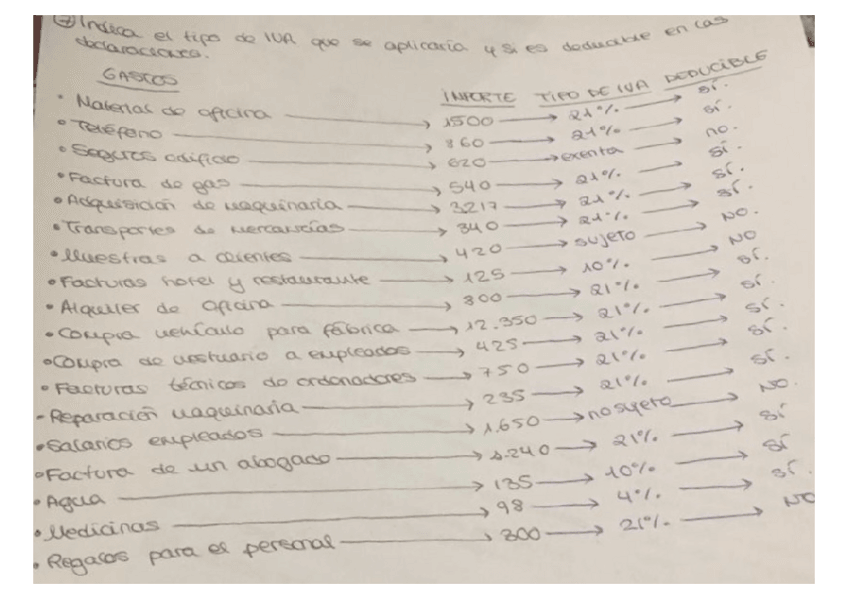 7) Indica el tipo de IVA que se aplicaría y si es deducible en las
declaraciones.
GASTOS IMPORTE TIPO DE IVA DEDUCIBLE
• Material de oficina → 1500 → 21% → sí.
• Teléfono → 360 → 21% → sí.
• Seguros edificio → 620 → exenta → no.
• Factura de gas → 540 → 21% → sí.
• Adquisición de maquinaria → 3217 → 21% → sí.
• Transportes de mercancías → 340 → 21% → sí.
• Muestras a clientes → 420 → sujeto → NO.
• Facturas hotel y restaurante → 125 → 10% → NO
• Alquiler de oficina → 300 → 21% → sí.
• Compra vehículo para fábrica → 12.350 → 21% → sí.
• Compra de vestuario a empleados → 425 → 21% → sí.
• Facturas técnicos de ordenadores → 750 → 21% → sí.
- Reparación maquinaria → 235 → 21% → sí.
• Salarios empleados → 1.650 → no sujeto → NO.
• Factura de un abogado → 1.240 → 21% → sí
• Agua → 135 → 10% → sí
• Medicinas → 98 → 4% → sí.
• Regalos para el personal → 300 → 21% → NO